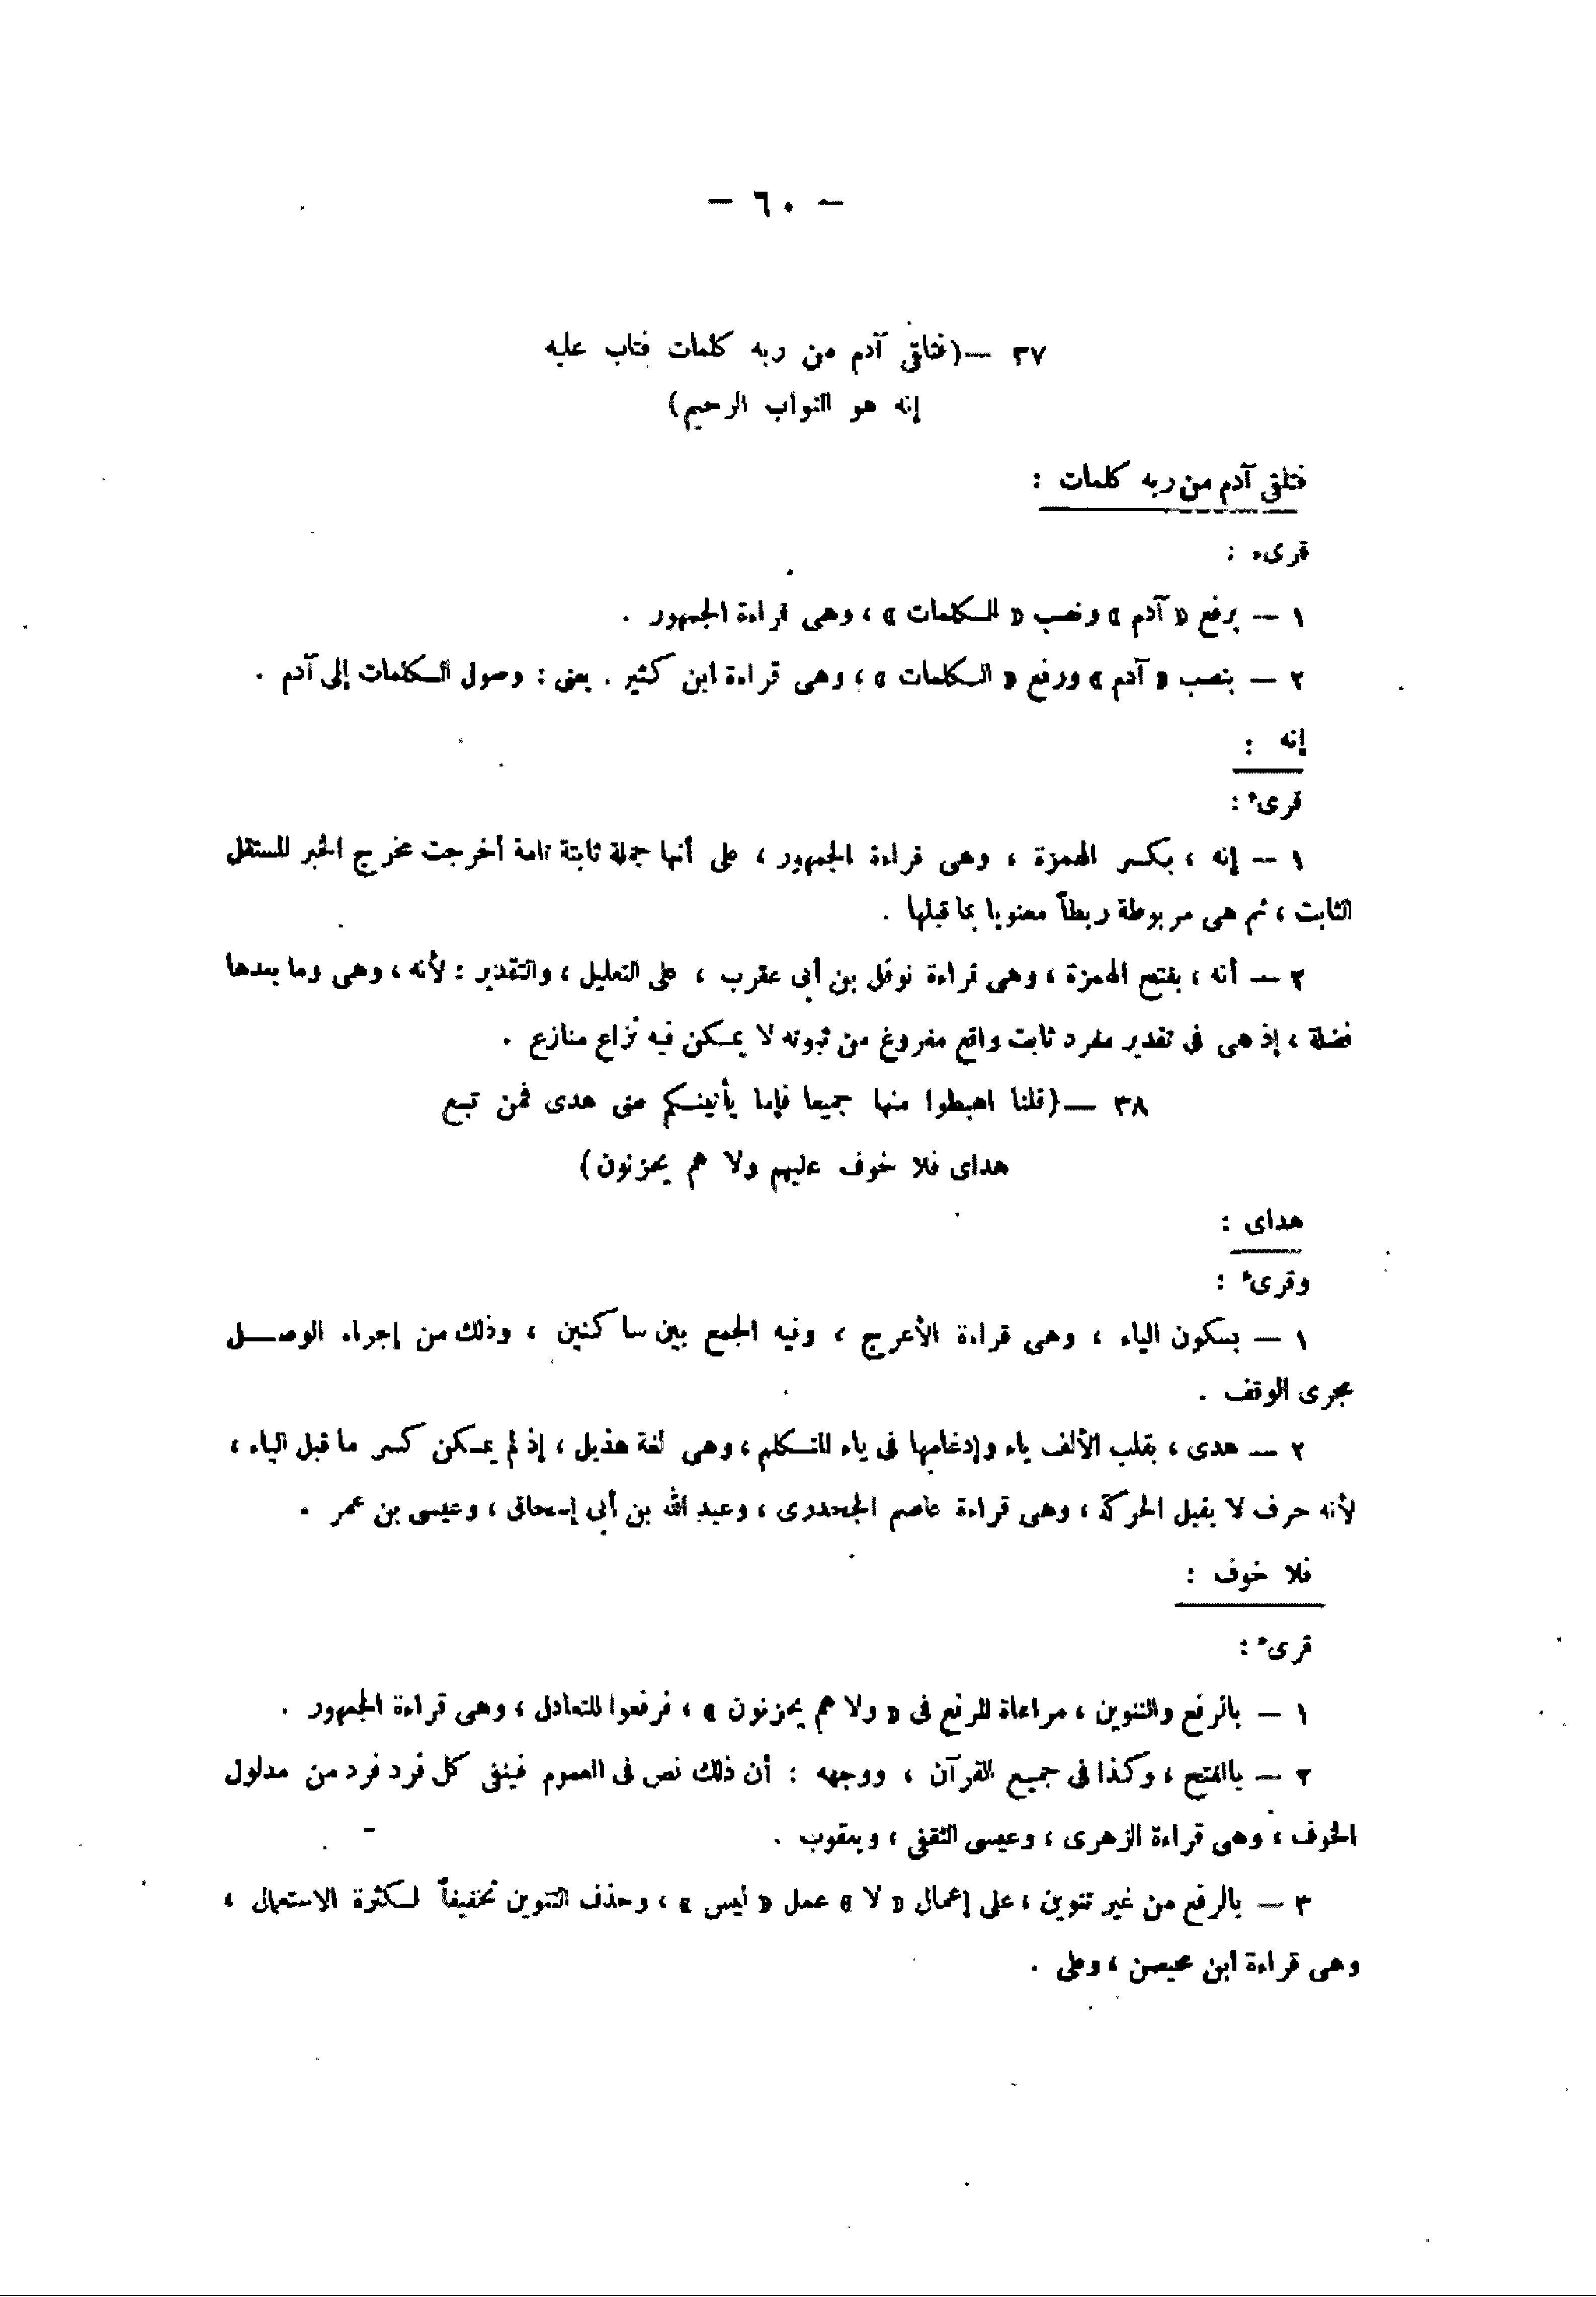 — ٦٠ —
٣٧ —(فتلقى آدم من ربه كلمات فتاب عليه
إنه هو التواب الرحيم)
فتلقى آدم من ربه كلمات :
قرىء :
١ — برفع « آدم » ونصب « الكلمات » ، وهى قراءة الجمهور .
٢ — بنصب « آدم » ورفع « الكلمات » ، وهى قراءة ابن كثير . يعنى : وصول الكلمات إلى آدم .
إنه :
قرىء :
١ — إنه ، بكسر الهمزة ، وهى قراءة الجمهور ، على أنها جملة ثابتة تامة أخرجت مخرج الخبر المستقل
الثابت ، ثم هى مربوطة ربطاً معنويا بما قبلها .
٢ — أنه ، بفتح الهمزة ، وهى قراءة نوفل بن أبى عقرب ، على التعليل ، والتقدير : لأنه ، وهى وما بعدها
فضلة ، إذ هى فى تقدير مفرد ثابت واقع مفروغ من ثبوته لا يمكن فيه نزاع منازع .
٣٨ —(قلنا اهبطوا منها جميعا فإما يأتينكم منى هدى فمن تبع
هداى فلا خوف عليهم ولا هم يحزنون)
هداى :
وقرىء :
١ — بسكون الياء ، وهى قراءة الأعرج ، وفيه الجمع بين ساكنين ، وذلك من إجراء الوصل
مجرى الوقف .
٢ — هدى ، بقلب الألف ياء وإدغامها فى ياء المتكلم ، وهى لغة هذيل ، إذ لم يمكن كسر ما قبل الياء ،
لأنه حرف لا يقبل الحركة ، وهى قراءة عاصم الجحدرى ، وعبد الله بن أبى إسحاق ، وعيسى بن عمر .
فلا خوف :
قرىء :
١ — بالرفع والتنوين ، مراعاة للرفع فى « ولا هم يحزنون » ، فرفعوا للتعادل ، وهى قراءة الجمهور .
٢ — بالفتح ، وكذا فى جميع القرآن ، ووجهه : أن ذلك نص فى العموم فينفى كل فرد فرد من مدلول
الخوف ، وهى قراءة الزهرى ، وعيسى الثقفى ، ويعقوب .
٣ — بالرفع من غير تنوين ، على إعمال « لا » عمل « ليس » ، وحذف التنوين تخفيفاً لكثرة الاستعمال ،
وهى قراءة ابن محيصن ، وعلى .